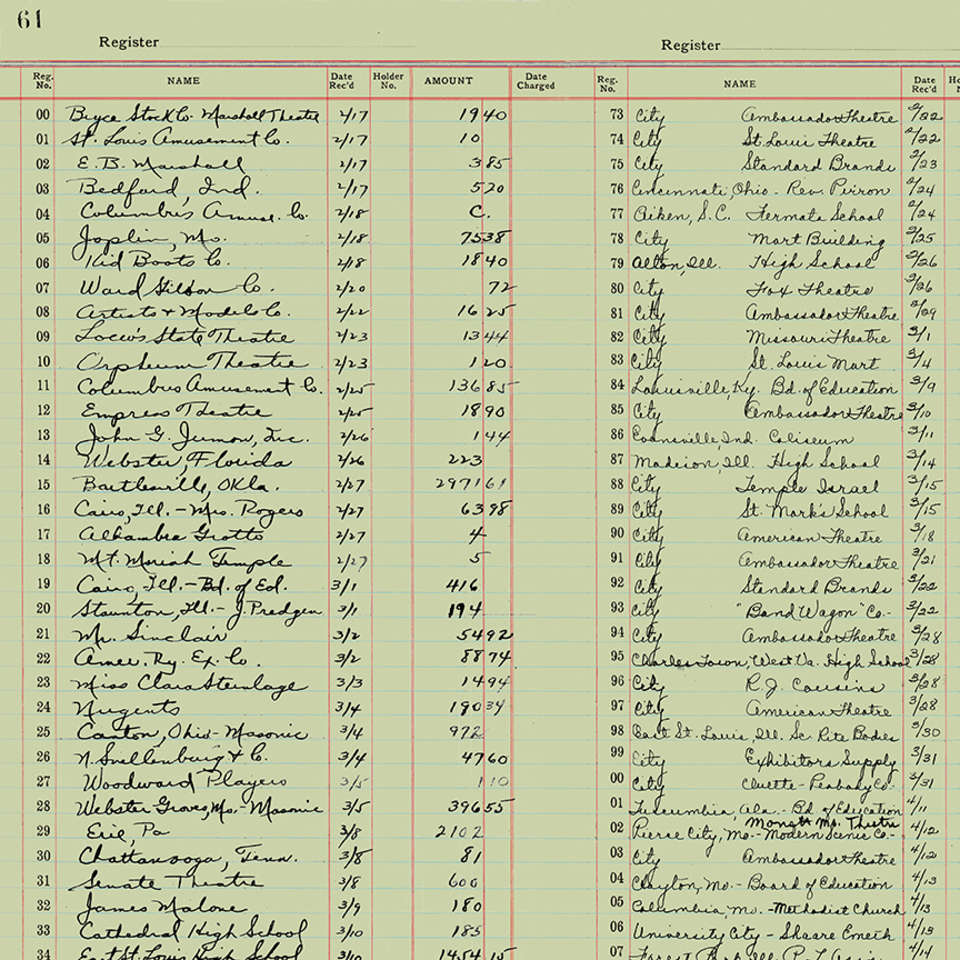 61
Register Register
Reg. No. NAME Date Rec'd Holder No. AMOUNT Date Charged
00 Bryce Stock Co. Marshall Theatre 2/17 19 40
01 St. Louis Amusement Co. 2/17 10
02 E. B. Marshall 2/17 3 85
03 Bedford, Ind. 2/17 5 20
04 Columbus Amuse. Co. 2/18 C.
05 Joplin, Mo. 2/18 75 38
06 Kid Boots Co. 2/18 18 40
07 Ward Co. 2/20 72
08 Artists & Models Co. 2/22 16 25
09 Loew's State Theatre 2/23 13 44
10 Orpheum Theatre 2/23 1 20
11 Columbus Amusement Co. 2/25 136 85
12 Empress Theatre 2/25 18 90
13 John G. Inc. 2/26 1 44
14 Webster, Florida 2/26 223
15 Bartlesville, Okla. 2/27 2971 61
16 Cairo, Ill. - Mrs. Rogers 2/27 63 98
17 Alhambra Grotto 2/27 4
18 Mt. Moriah Temple 2/27 5
19 Cairo, Ill. - Bd. of Ed. 3/1 416
20 Staunton, Ill. - J. Predgen 3/1 194
21 Mr. Sinclair 3/2 54 92
22 Amer. Ry. Ex. Co. 3/2 88 74
23 Miss Clara Steinlage 3/3 14 94
24 Nugents 3/4 190 34
25 Canton, Ohio - Masonic 3/4 972
26 N. Snellenburg & Co. 3/4 47 60
27 Woodward Players 3/5 1 10
28 Webster Groves, Mo. - Masonic 3/5 396 55
29 Erie, Pa 3/8 2102
30 Chattanooga, Tenn. 3/8 81
31 Senate Theatre 3/8 600
32 James Malone 3/9 180
33 Cathedral High School 3/10 185
34 East St. Louis High School 3/10 1454 15
Reg. No. NAME Date Rec'd
73 City Ambassador Theatre 2/22
74 City St. Louis Theatre 2/22
75 City Standard Brands 2/23
76 Cincinnati, Ohio - Rev. Peiron 2/24
77 Aiken, S.C. Fermata School 2/24
78 City Mart Building 2/25
79 Alton, Ill. High School 2/26
80 City Fox Theatre 2/26
81 City Ambassador Theatre 2/29
82 City Missouri Theatre 3/1
83 City St. Louis Mart 3/4
84 Louisville, Ky. Bd. of Education 3/9
85 City Ambassador Theatre 3/10
86 Evansville, Ind. Coliseum 3/11
87 Madison, Ill. High School 3/14
88 City Temple Israel 3/15
89 City St. Mark's School 3/15
90 City American Theatre 3/18
91 City Ambassador Theatre 3/21
92 City Standard Brands 3/22
93 City "Band Wagon" Co. 3/22
94 City Ambassador Theatre 3/28
95 Charles Town, West Va. High School 3/28
96 City R. J. Cousins 3/28
97 City American Theatre 3/28
98 East St. Louis, Ill. Sc. Rite Bodies 3/30
99 City Exhibitors Supply 3/31
00 City Cluett-Peabody Co. 3/31
01 Tuscumbia, Ala. - Bd. of Education 4/11
Mo. Theatre
02 Pierce City, Mo. - Modern Scenic Co. - 4/12
03 City Ambassador Theatre 4/12
04 Clayton, Mo. - Board of Education 4/13
05 Columbia, Mo. - Methodist Church 4/13
06 University City - Shaare Emeth 4/13
07 Forest Park Ill. P.T. Assn. 4/14